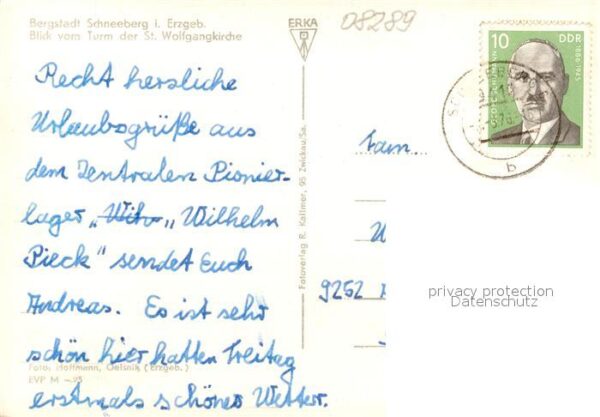 Bergstadt Schneeberg i. Erzgeb.
Blick vom Turm der St. Wolfgangkirche
ERKA
08289
10 DDR
GEORG SCHUMANN 1886-1945
Recht herzliche
Urlaubsgrüße aus
dem Zentralen Pionier-
lager „Wilhelm
Pieck" sendet Euch
Andreas. Es ist sehr
schön hier hatten Freitag
erstmals schönes Wetter.
Foto: Hoffmann, Oelsnitz (Erzgeb.)
EVP M -,95
Fotoverlag R. Kallmer, 95 Zwickau/Sa.
Fam.
9262
b
privacy protection
Datenschutz